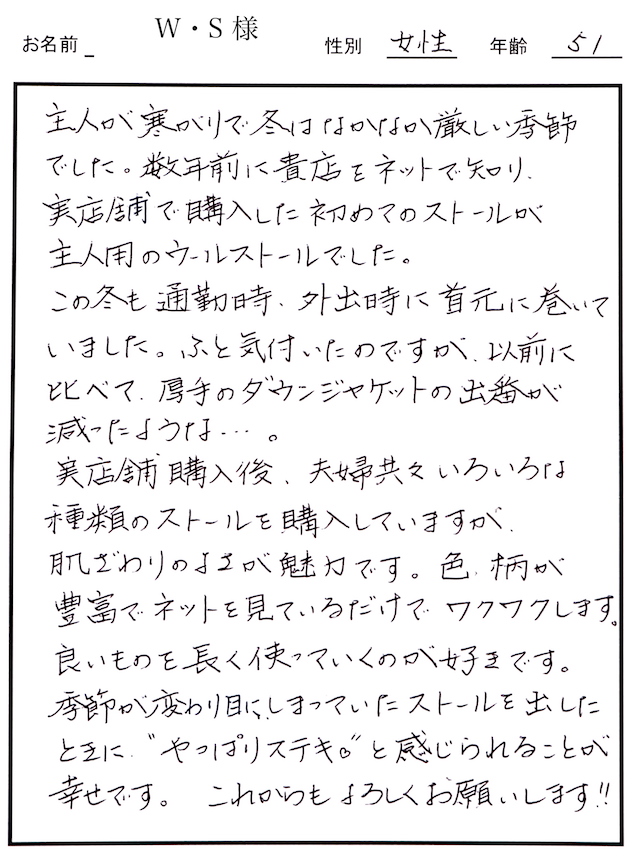 お名前 W・S 様 性別 女性 年齢 51
主人が寒がりで冬はなかなか厳しい季節
でした。数年前に貴店をネットで知り、
実店舗で購入した初めてのストールが
主人用のウールストールでした。
この冬も通勤時、外出時に首元に巻いて
いました。ふと気付いたのですが、以前に
比べて、厚手のダウンジャケットの出番が
減ったような…。
実店舗購入後、夫婦共々いろいろな
種類のストールを購入していますが、
肌ざわりのよさが魅力です。色、柄が
豊富でネットを見ているだけでワクワクします。
良いものを長く使っていくのが好きです。
季節が変わり目に、しまっていたストールを出した
ときに、“やっぱりステキ。”と感じられることが
幸せです。 これからもよろしくお願いします!!